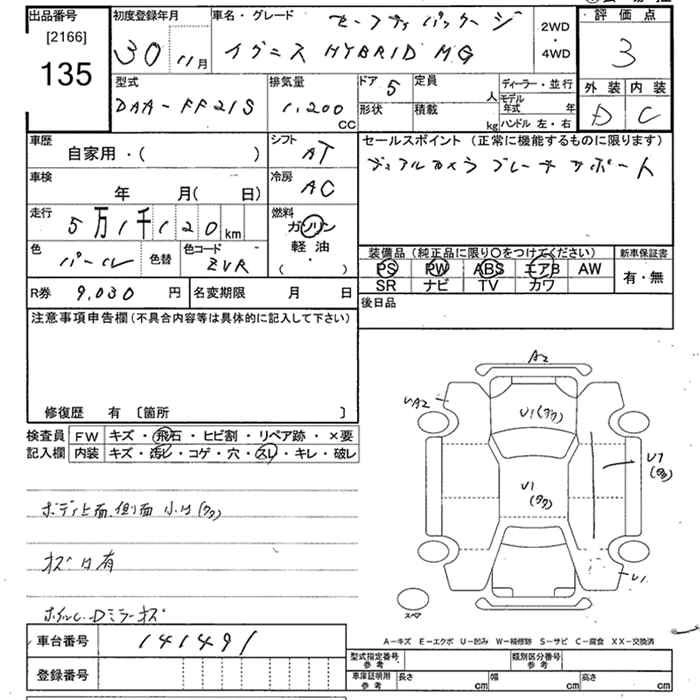 出品番号
[2166]
135
初度登録年月
30 11月
車名・グレード
セーフティパッケージ
イグニス HYBRID MG
2WD
・
4WD
評価点
3
外装 内装
D C
型式
DAA-FF21S
排気量
1,200
CC
ドア 5
定員
人
形状
積載
kg
ディーラー・並行
モデル
年式 年
ハンドル 左・右
車歴
自家用・( )
シフト
AT
車検
年 月(日)
冷房
AC
走行
5万1千120km
燃料
ガソリン
軽油
( )
色
パール
色替
色コード
ZVR
R券 9,030 円
名変期限 月 日
セールスポイント(正常に機能するものに限ります)
デュアルカメラブレーキサポート
装備品(純正品に限り〇をつけてください)
PS PW ABS エアB AW
SR ナビ TV カワ
新車保証書
有・無
後日品
注意事項申告欄(不具合内容等は具体的に記入して下さい)
修復歴 有 〔箇所 〕
検査員
記入欄
FW キズ・飛石・ヒビ割・リペア跡・×要
内装 キズ・汚レ・コゲ・穴・スレ・キレ・破レ
ボディ上面、側面 小凹(多)
キズ凹有
ホイルC、Dミラーキズ
A2
UA2
U1(タタ)
U1
(タタ)
U1
スペア
A-キズ E-エクボ U-凹み W-補修跡 S-サビ C-腐食 XX-交換済
車台番号
141491
登録番号
型式指定番号
参考
類別区分番号
参考
車庫証明用
参考
長さ cm
幅 cm
高さ cm